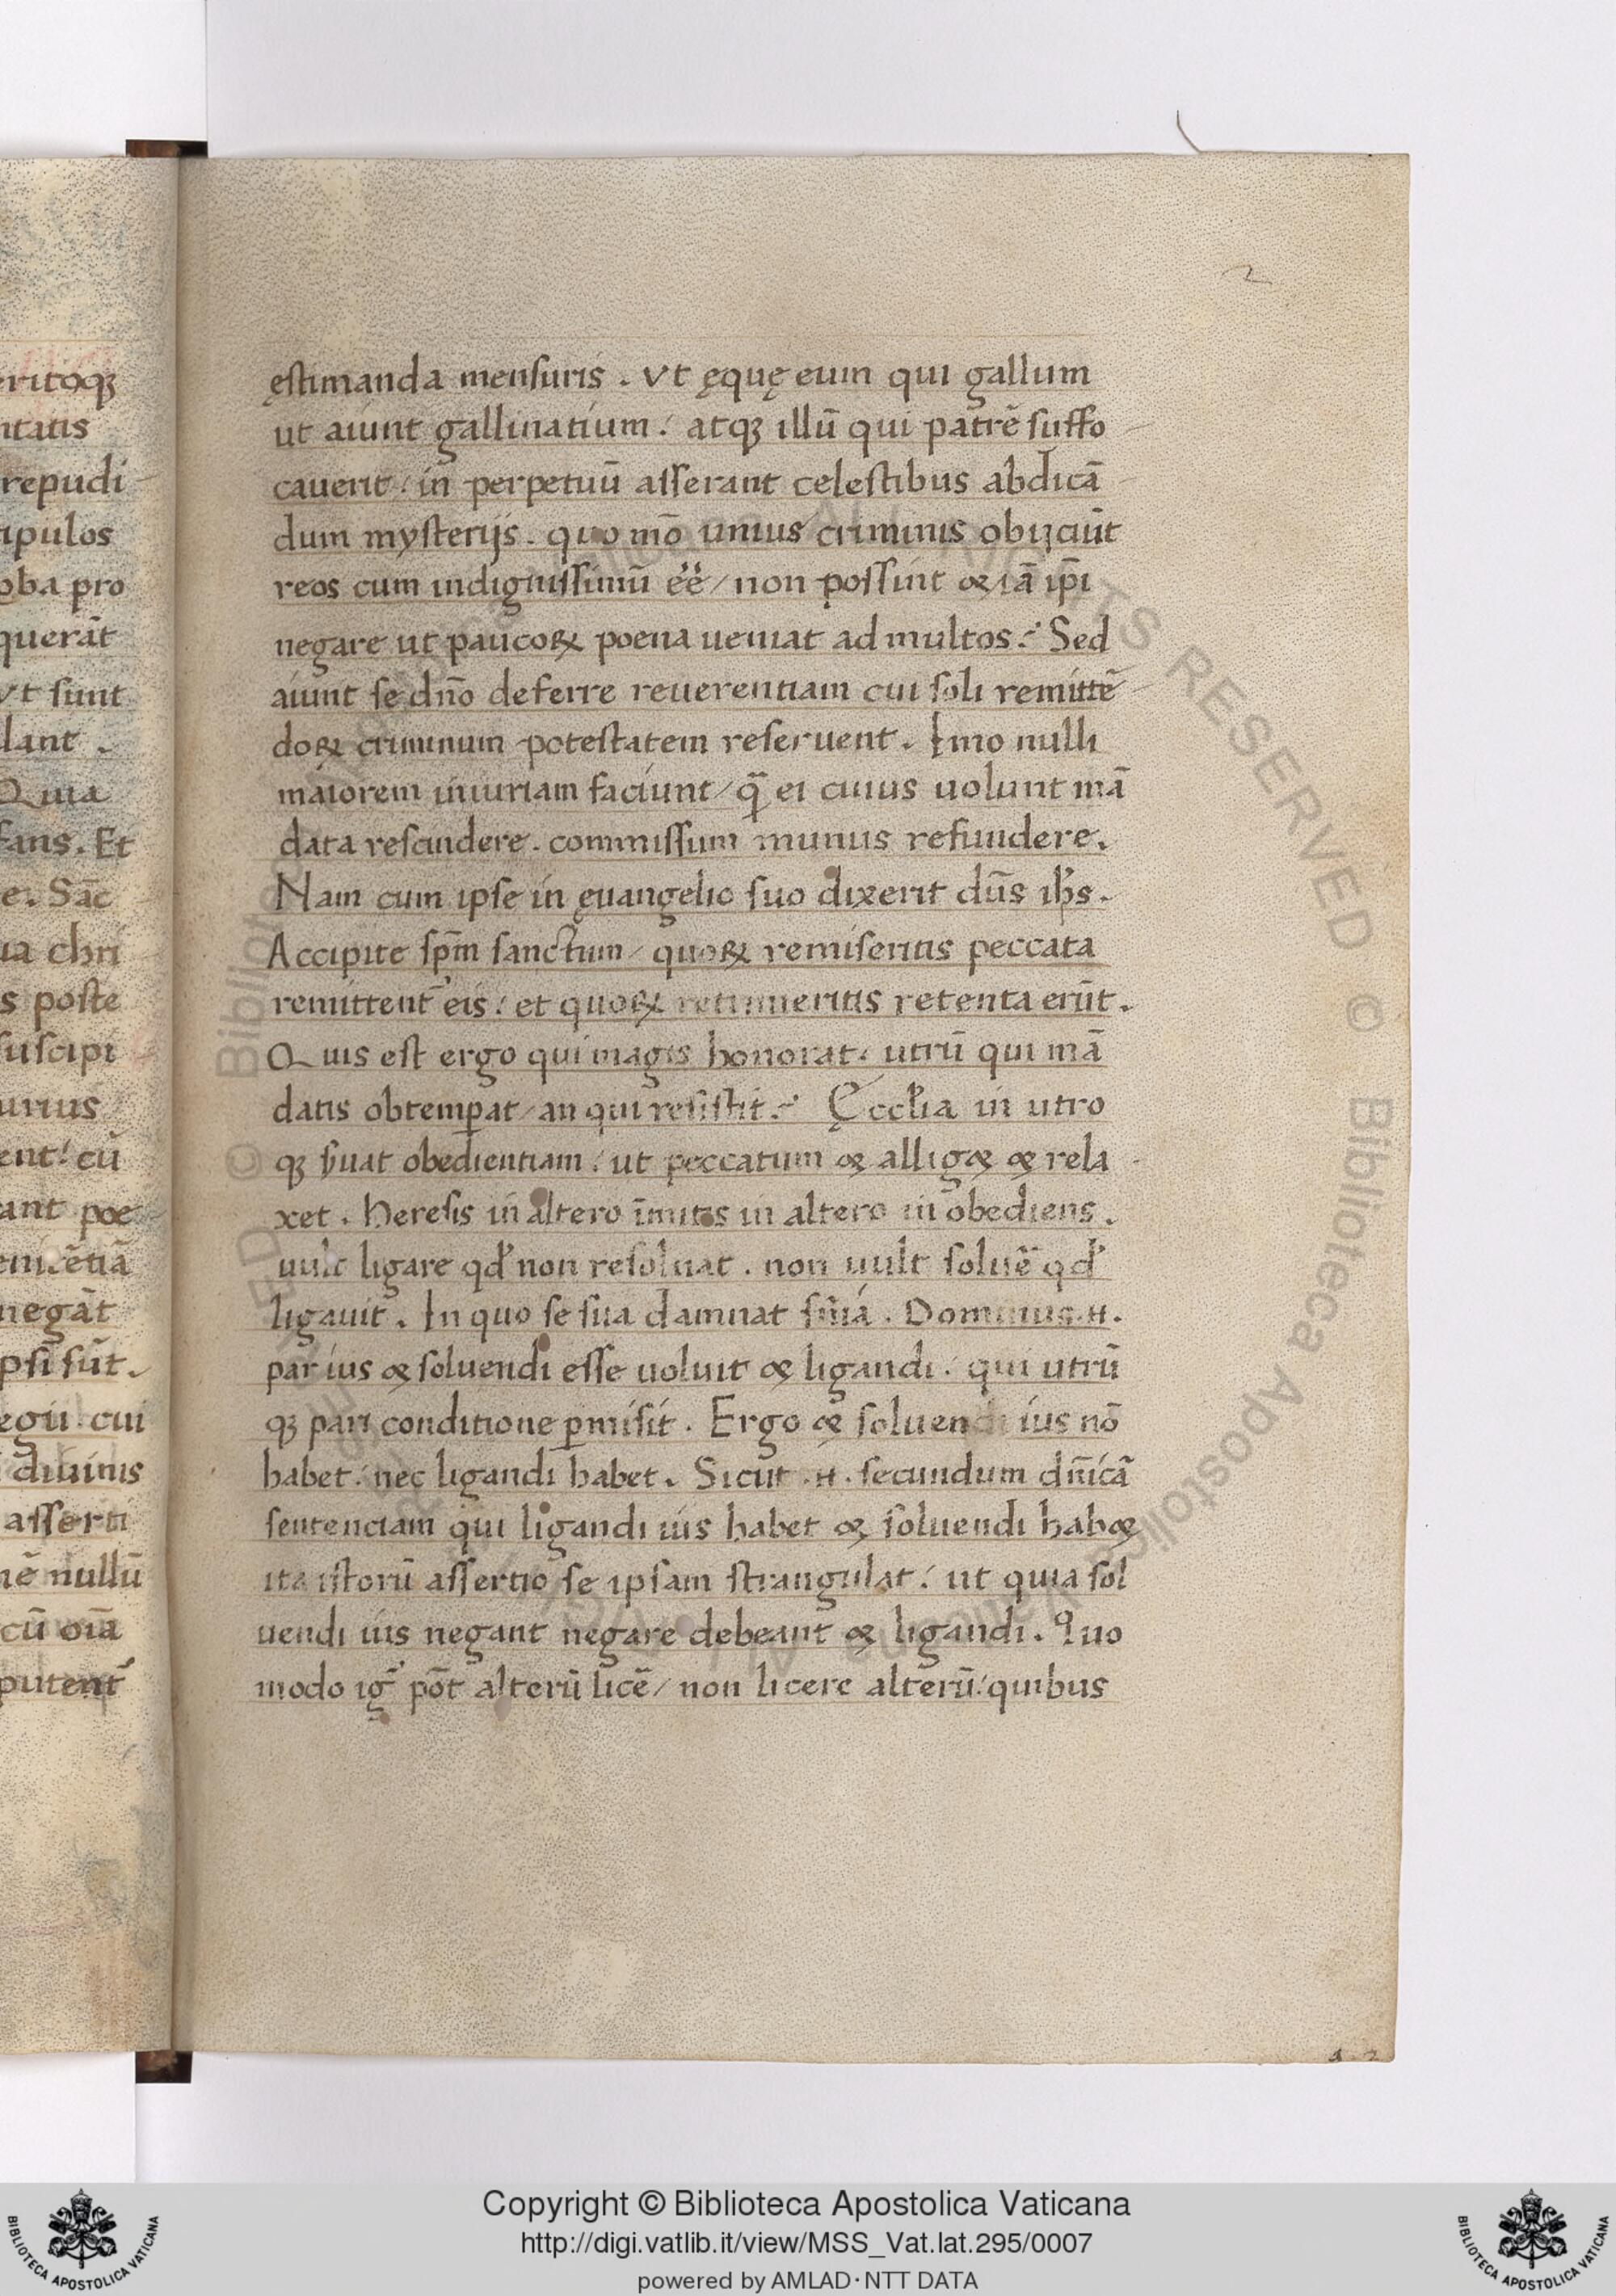 eritoqꝫ
ntatis
repudi
ipulos
oba pro
querāt
vt sunt
lant .
Quia
fans . Et
e . Sāc
ua chri
s poste
suscipi
urius
ent : cū
ant poe
enitētiā
negāt
psi sūt .
egii . cui
diuinis
asserti
nē nullū
cū oīa
putent᷑
2
ęstimanda mensuris . vt ęquę eum qui gallum
ut aiunt gallinatium : atqꝫ illū qui patrē suffo
cauerit : in perpetuū asserant celestibus abdicā
dum mysterijs . quo mō unius criminis obijciūt
reos cum indignissimū eē / non possint & iā ip̄i
negare ut paucoꝝ poena ueniat ad multos : Sed
aiunt se dn̄o deferre reuerentiam cui soli remittē
doꝝ criminum potestatem reseruent . Imo nulli
maiorem iniuriam faciunt / q̄ ei cuius uolunt mā
data rescindere . commissum munus refundere .
Nam cum ipse in ęuangelio suo dixerit dn̄s ih̄s .
Accipite sp̄m sanctum / quoꝝ remiseritis peccata
remittent᷑ eis : et quoꝝ retinueritis retenta erūt .
Quis est ergo qui magis honorat : utrū qui mā
datis obtemꝑat / an qui resistit : Ęccl̄ia in utro
qꝫ ẜuat obedientiam : ut peccatum & allig& & rela
xet . heresis in altero īmitis in altero in obediens .
uult ligare qd̄ non resoluat . non uult soluē qd̄
ligauit . In quo se sua damnat sn̄ia . Dominus .n.
par ius & soluendi esse uoluit & ligandi : qui utrū
qꝫ pari conditione ꝑmisit . Ergo & soluendi ius nō
habet : nec ligandi habet . Sicut .n. secundum dn̄icā
sentenciam qui ligandi ius habet & soluendi hab&
ita istorū assertio se ipsam strangulat : ut quia sol
uendi ius negant negare debeant & ligandi . Quo
modo ig᷑ pōt alterū licē / non licere alterū : quibus
Copyright © Biblioteca Apostolica Vaticana
http://digi.vatlib.it/view/MSS_Vat.lat.295/0007
powered by AMLAD·NTT DATA
BIBLIOTECA APOSTOLICA VATICANA
BIBLIOTECA APOSTOLICA VATICANA